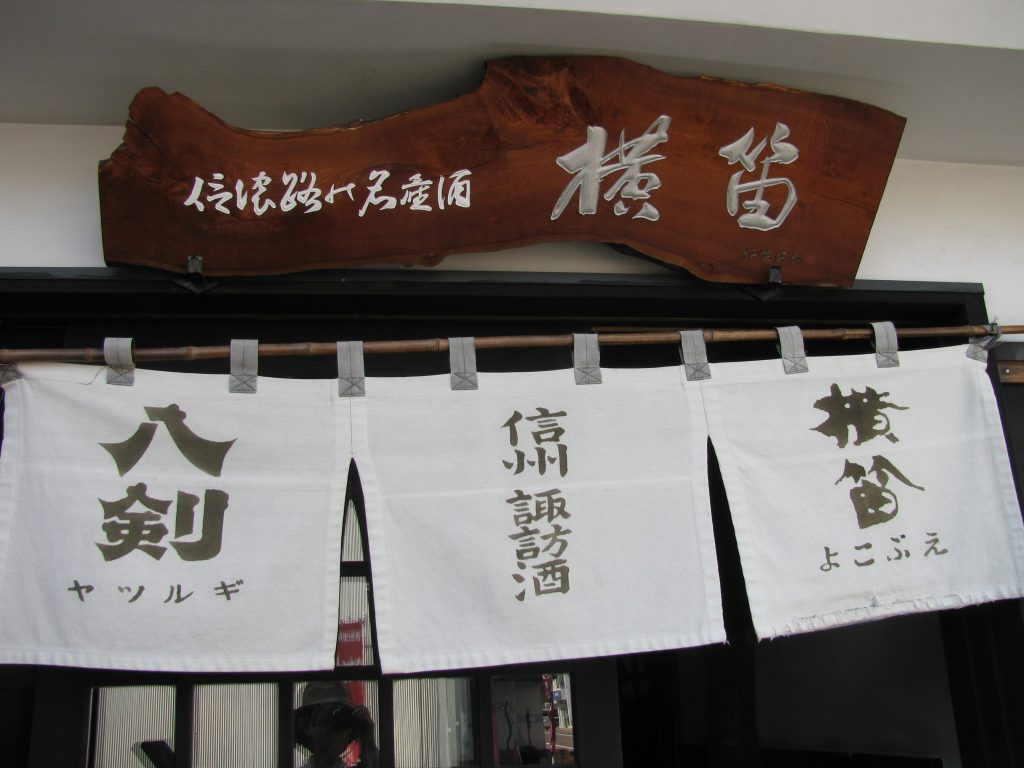 信濃路の名産酒 横笛
八剣
ヤツルギ
信州 諏訪酒
横笛
よこぶえ